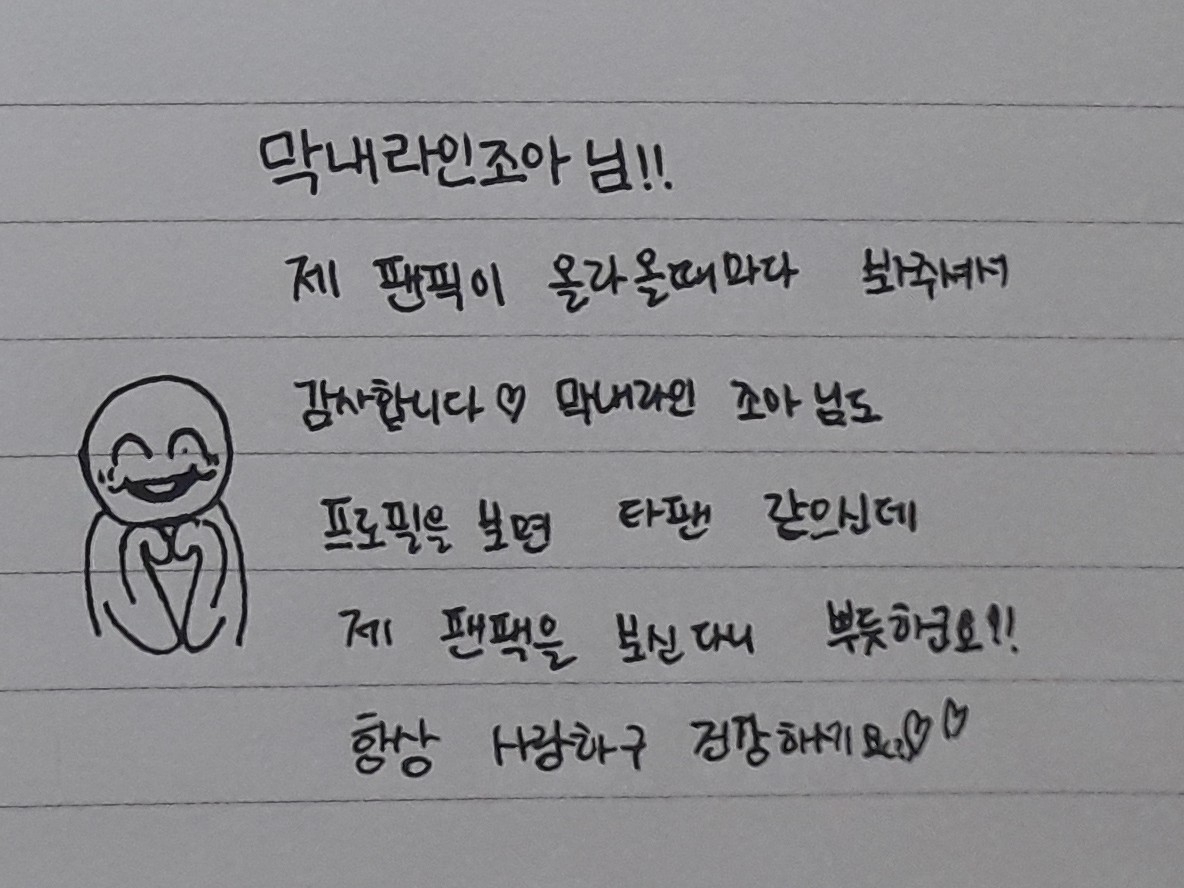 막내라인조아 님!!
제 팬픽이 올라올때마다 봐주셔서
감사합니다♡ 막내라인 조아 님도
프로필을 보면 타팬 같으신데
제 팬팩을 보신다니 뿌듯하군요!!
항상 사랑하구 건강하세요..♡♡